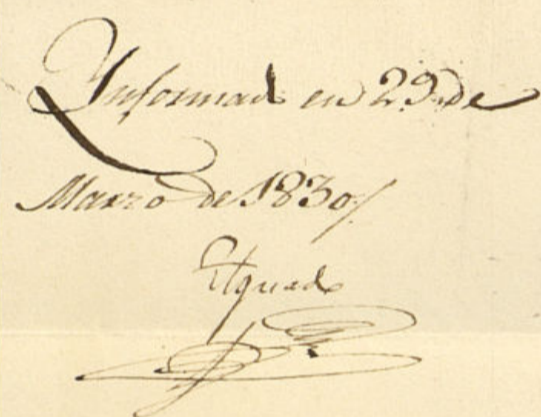 Informad en 29 de
Marzo de 1830